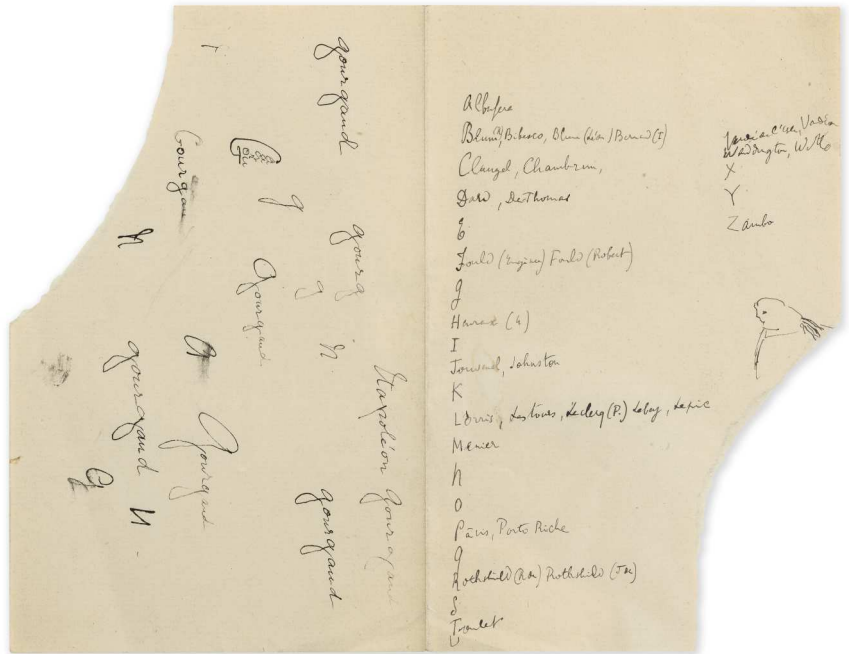 gourgaud
Gourgau
Gou
g
gourg
g
Gourgaud
n
n
G
Gourgaud
gourgaud
G
n
Napoléon Gourgaud
gourgaud
Albufera
Blum, Bibesco, Blum (Léon) Bernard (T)
Clauzel, Chambrun,
Daru, De Thomas
E
Fould (Eugène) Fould (Robert)
g
H (G)
I
Johnston
K
Lorris, Lastours, Leclerq (P.) Lebey, Lepic
Menier
n
O
Pâris, Porto Riche
q
Rothshild (Rob) Rothshild (Jac)
S
Toulet
U
Waddington,
X
Y
Zambo